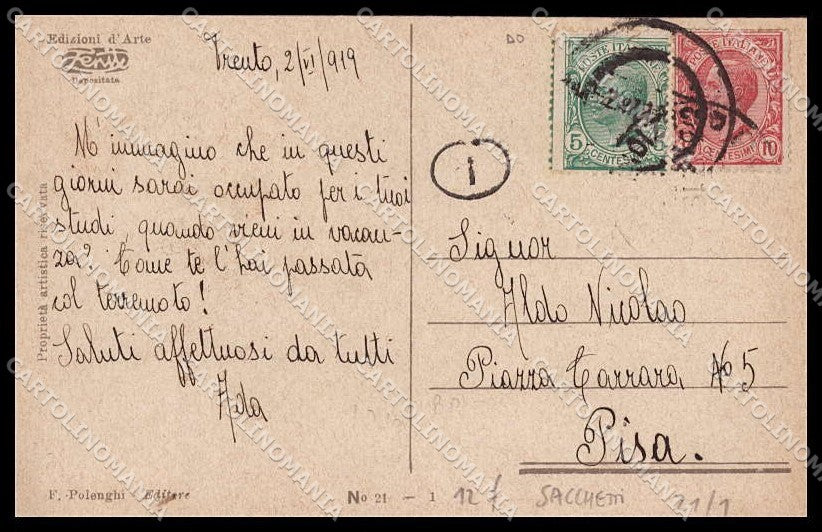 Edizioni d'Arte
Fenit
Depositata
Trento, 2/VI/919
M'immagino che in questi
giorni sarai occupato per i tuoi
studi, quando vieni in vacan-
za? Come te l'hai passata
col terremoto!
Saluti affettuosi da tutti
Ada
Proprietà artistica riservata
F. Polenghi - Editore
No 21 - 1
12 f
SACCHETTI
21/1
DO
1
POSTE ITALIANE
5 CENTESIMI 5
POSTE ITALIANE
CENTESIMI 10
Signor
Aldo Nicolao
Piazza Carrara No 5
Pisa.
CARTOLINOMANIA